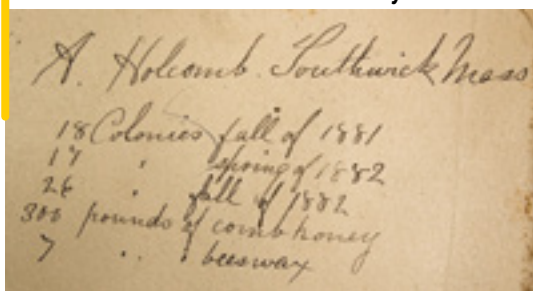 A. Holcomb. Southwick Mass
18 Colonies fall of 1881
17 " spring of 1882
26 " fall of 1882
300 pounds of comb honey
7 " " beeswax